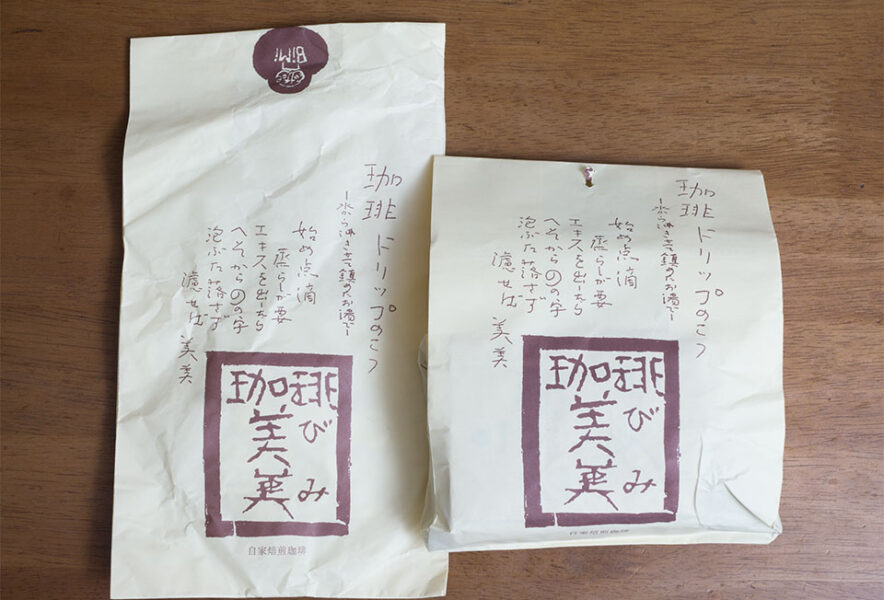 BiMi
珈琲 ドリップのこつ
ー水から 鎮めたお湯でー
始め点滴
蒸らしが要
エキスを出したら
へそからのの字
泡ぶた落さず
濾せば 美美
珈琲
美美
びみ
自家焙煎珈琲
珈琲 ドリップのこつ
ー水から 鎮めたお湯でー
始め点滴
蒸らしが要
エキスを出したら
へそからのの字
泡ぶた落さず
濾せば 美美
珈琲
美美
びみ
自家焙煎珈琲